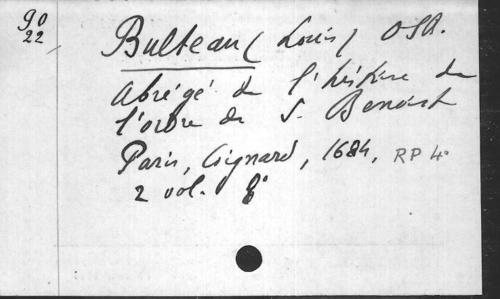 90
22
Bulteau (Louis) OSB.
Abrégé de l'histoire de
l'ordre de S. Benoist
Paris, Coignard, 1684, RP 4°
2 vol. 8°